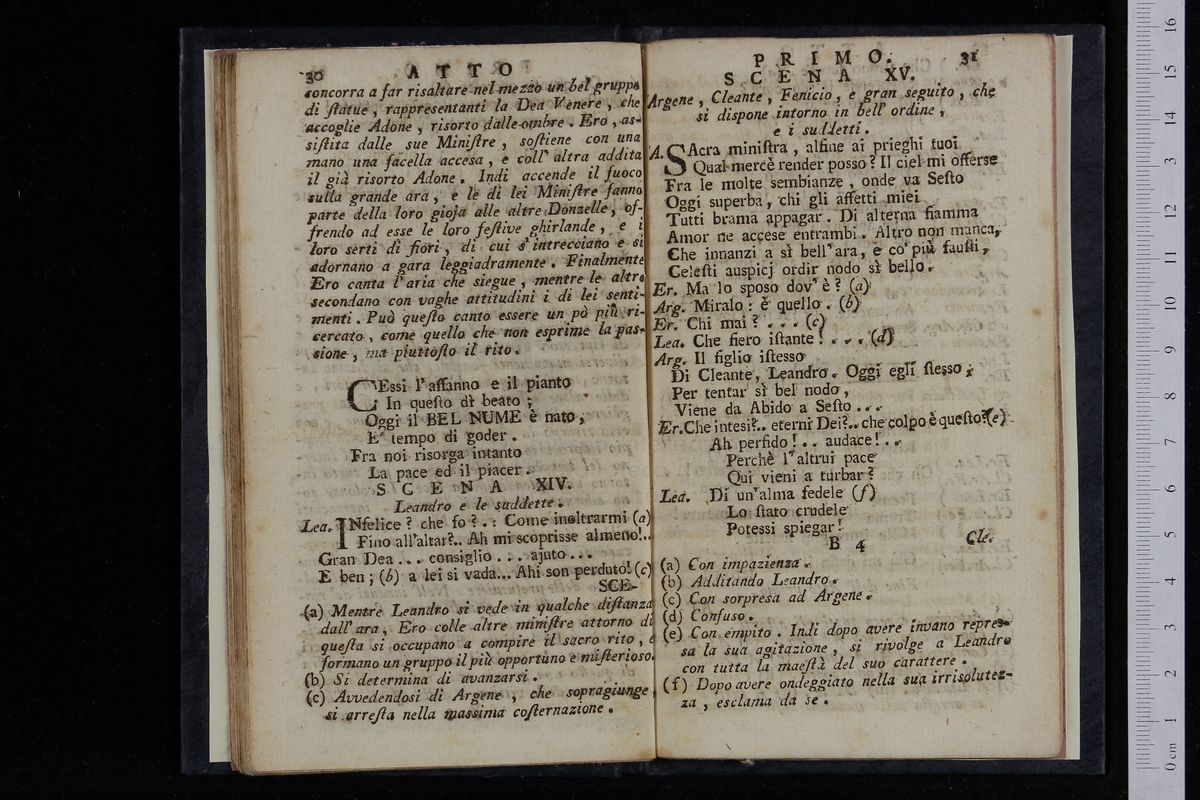 30 ATTO
concorra a far risaltare nel mezzo un bel gruppo
di ſtatue, rappresentanti la Dea Venere, che
accoglie Adone, risorto dalle ombre. Ero, as-
siſtita dalle sue Miniſtre, soſtiene con una
mano una facella accesa, e coll' altra addita
il già risorto Adone. Indi accende il fuoco
sulla grande ara, e le di lei Miniſtre fanno
parte della loro gioja alle altre Donzelle, of-
frendo ad esse le loro feſtive ghirlande, e i
loro serti di fiori, di cui s' intrecciano e si
adornano a gara leggiadramente. Finalmente
Ero canta l' aria che siegue, mentre le altre
secondano con vaghe attitudini i di lei senti-
menti. Può queſto canto essere un pò più ri-
cercato, come quello che non esprime la pas-
sione, ma piuttoſto il rito.
CEssi l' affanno e il pianto
In queſto dì beato;
Oggi il BEL NUME è nato,
E' tempo di goder.
Fra noi risorga intanto
La pace ed il piacer.
SCENA XIV.
Leandro e le suddette.
Lea. INfelice? che fo?..: Come inoltrarmi (a)
Fino all'altar?.. Ah mi scoprisse almeno!..
Gran Dea... consiglio... ajuto...
E ben; (b) a lei si vada... Ahi son perduto! (c)
SCE-
(a) Mentre Leandro si vede in qualche diſtanza
dall' ara, Ero colle altre miniſtre attorno di
queſta si occupano a compire il sacro rito, e
formano un gruppo il più opportuno e miſterioso.
(b) Si determina di avanzarsi.
(c) Avvedendosi di Argene, che sopragiunge,
si arreſta nella massima coſternazione.
PRIMO. 31
SCENA XV.
Argene, Cleante, Fenicio, e gran seguito, che
si dispone intorno in bell' ordine,
e i suddetti.
A. SAcra miniſtra, alfine ai prieghi tuoi
Qual mercè render posso? Il ciel mi offerse
Fra le molte sembianze, onde va Seſto
Oggi superba, chi gli affetti miei
Tutti brama appagar. Di alterna fiamma
Amor ne accese entrambi. Altro non manca,
Che innanzi a sì bell' ara, e co' più fauſti,
Celeſti auspicj ordir nodo sì bello.
Er. Ma lo sposo dov' è? (a)
Arg. Miralo: è quello. (b)
Er. Chi mai?... (c)
Lea. Che fiero iſtante!... (d)
Arg. Il figlio iſtesso
Di Cleante, Leandro. Oggi egli ſtesso,
Per tentar sì bel nodo,
Viene da Abido a Seſto...
Er. Che intesi?.. eterni Dei?.. che colpo è queſto? (e)
Ah perfido!.. audace!..
Perchè l' altrui pace
Qui vieni a turbar?
Lea. Di un' alma fedele (f)
Lo ſtato crudele
Potessi spiegar!
B 4 Cle.
(a) Con impazienza.
(b) Additando Leandro.
(c) Con sorpresa ad Argene.
(d) Confuso.
(e) Con empito. Indi dopo avere invano repres-
sa la sua agitazione, si rivolge a Leandro
con tutta la maeſtà del suo carattere.
(f) Dopo avere ondeggiato nella sua irrisolutez-
za, esclama da se.
0 cm 1 2 3 4 5 6 7 8 9 10 11 12 13 14 15 16